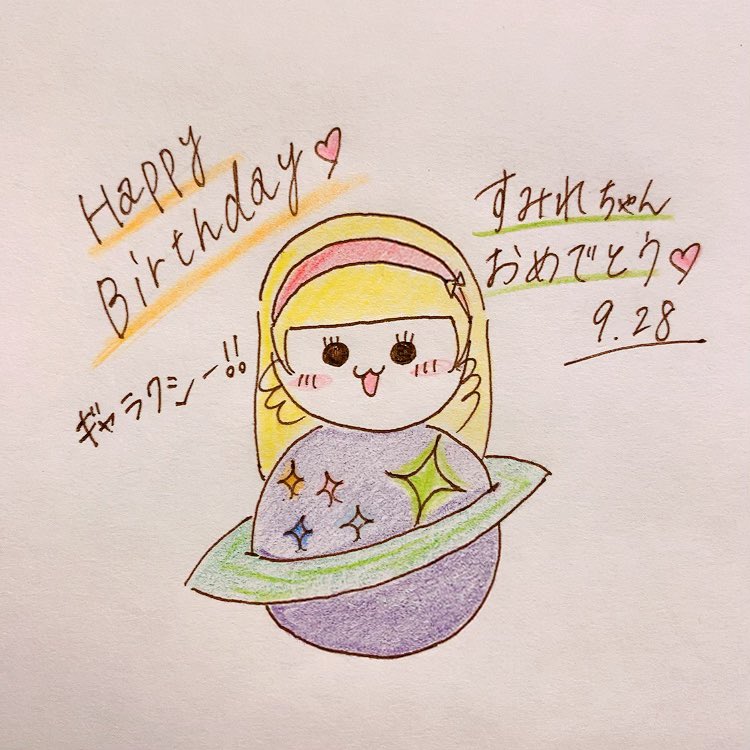 Happy
Birthday♡
すみれちゃん
おめでとう♡
9.28
ギャラクシー!!